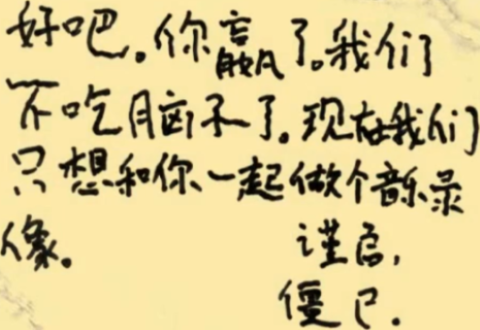 好吧。你赢了。我们
不吃脑子了。现在我们
只想和你一起做个音乐录
像。
谨启,
僵尸.